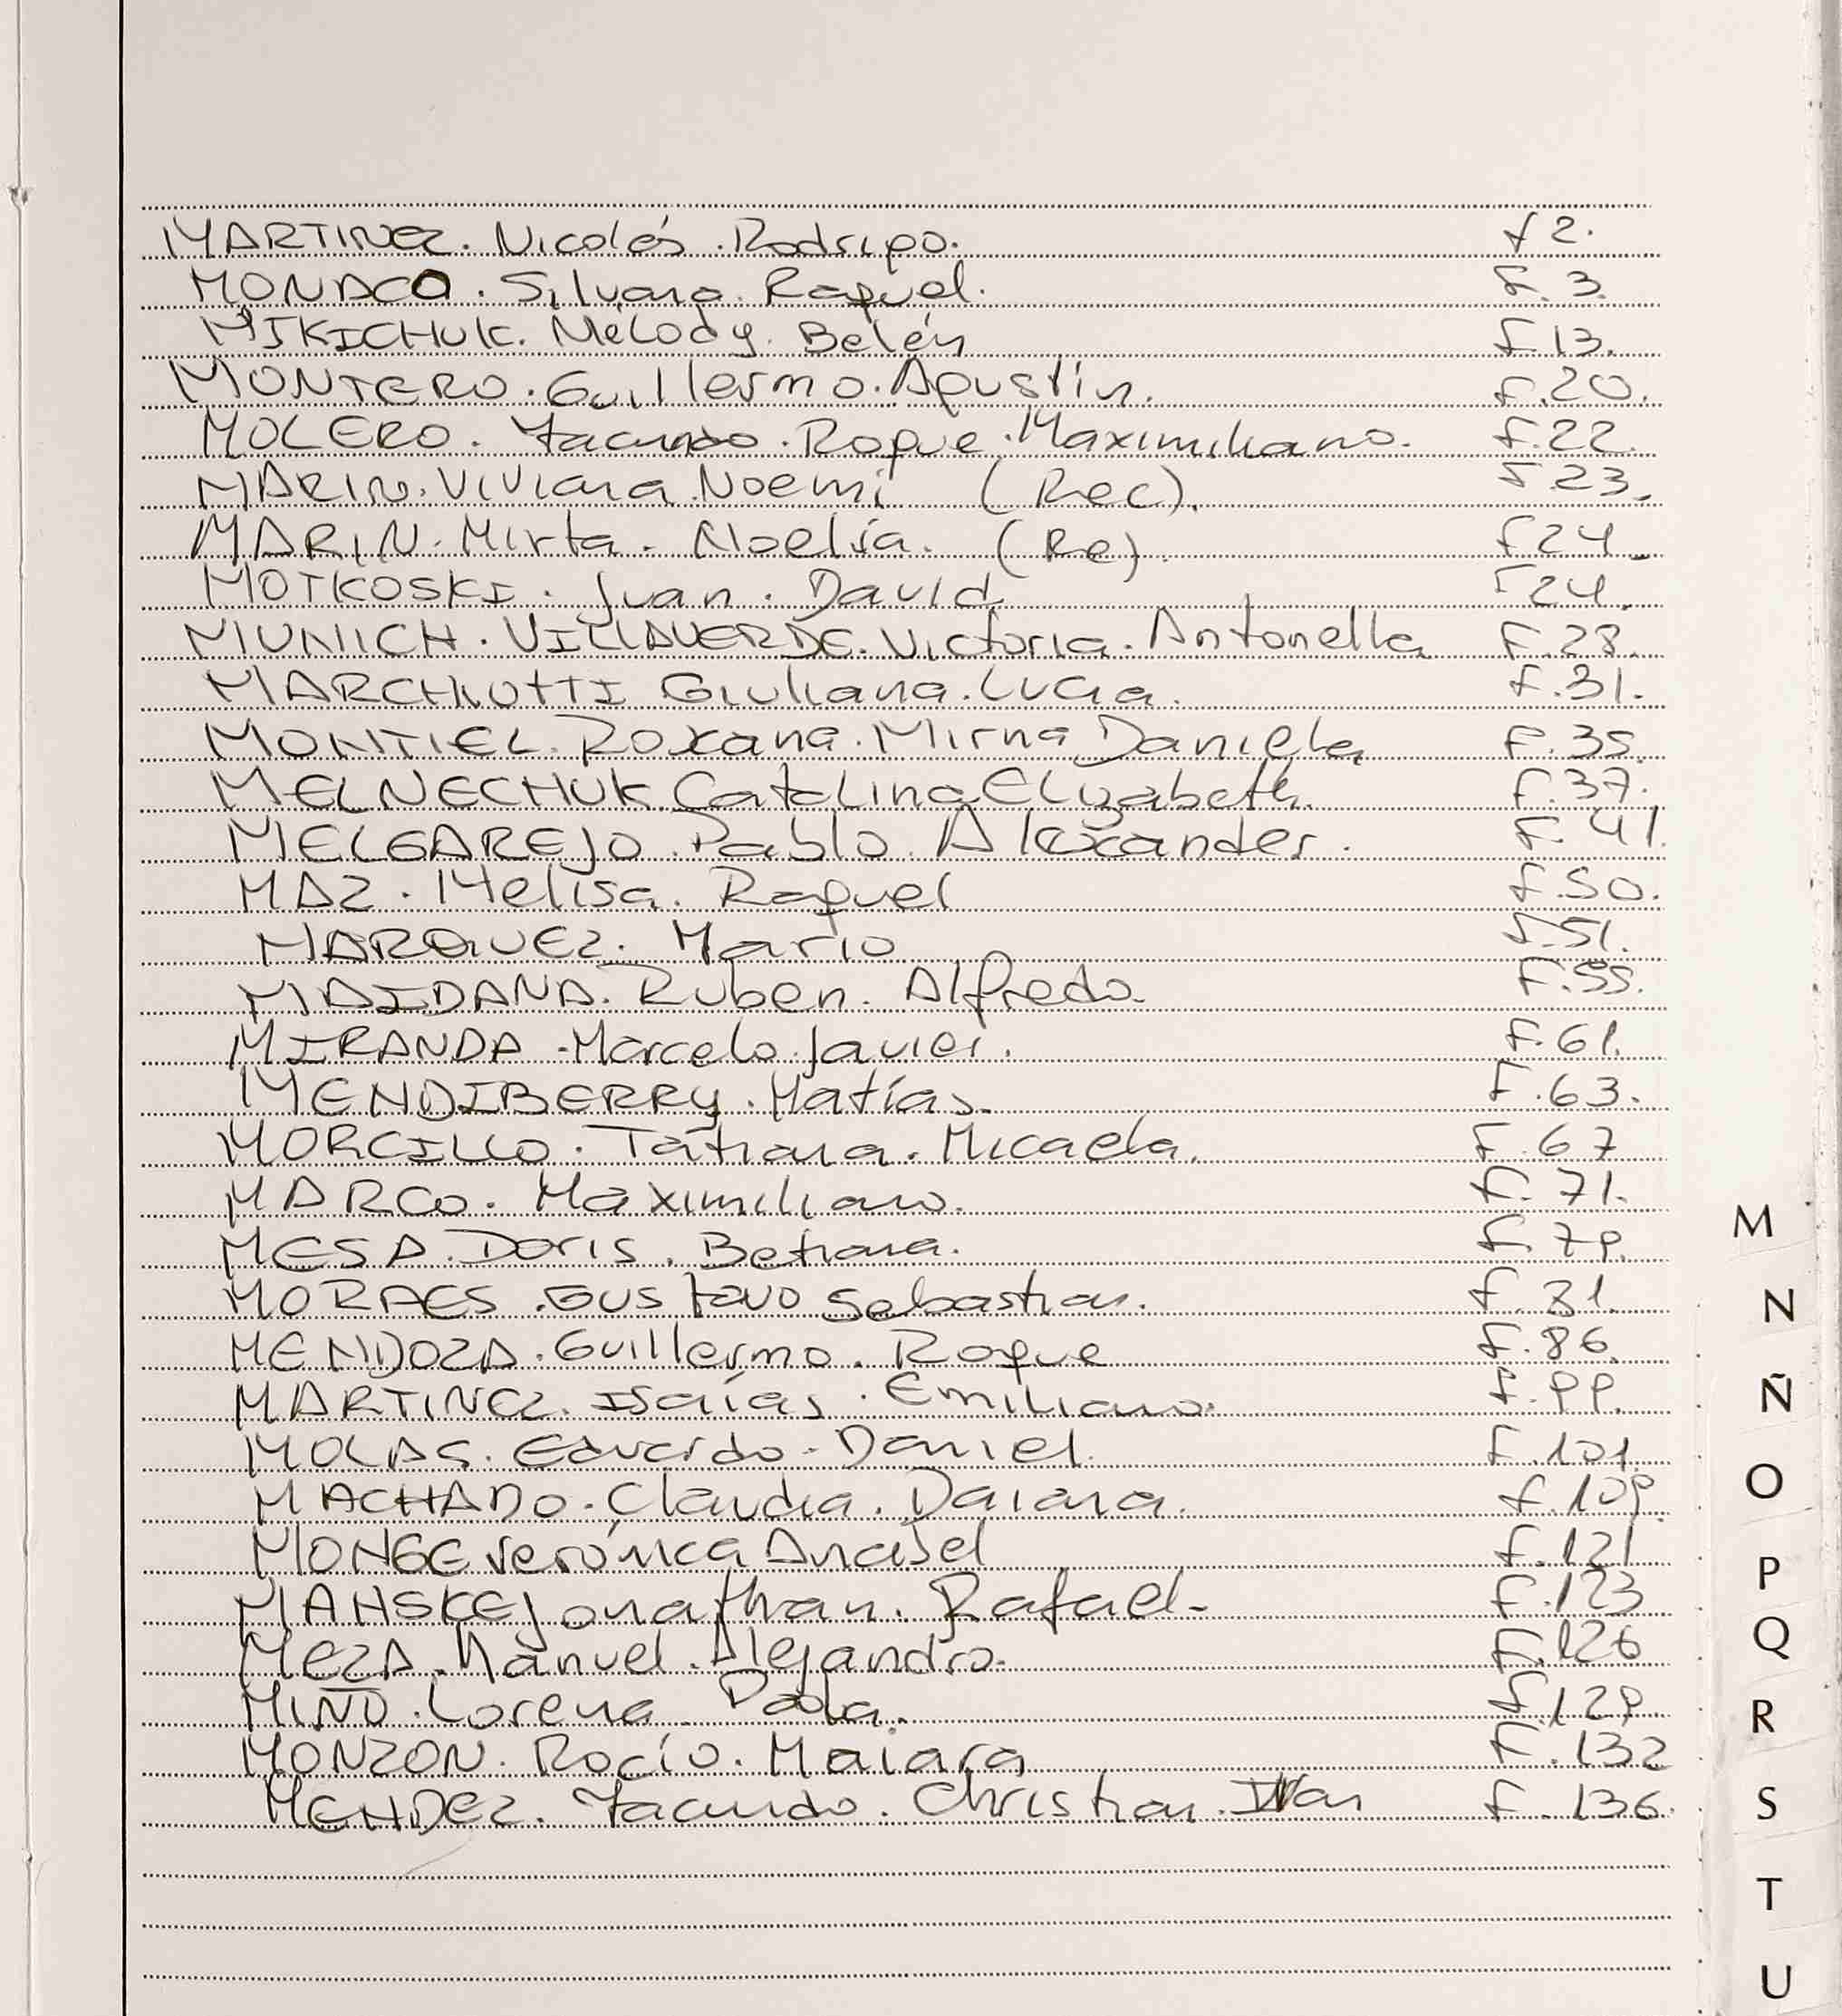 MARTINEZ. Nicolás. Rodrigo. f 2.
MONACO. Silvana. Raquel. f. 3.
MIKICHUK. Mélody. Belén f.13.
MONTERO. Guillermo. Agustín. f.20.
MOLERO. Facundo. Roque. Maximiliano. f.22.
MARIN. Viviana. Noemi (Rec). f.23.
MARIN. Mirta. Noelia. (Re). f24.
MOTKOSKI. Juan. David f24.
MUNICH. VILLAVERDE. Victoria. Antonella f.28.
MARCHIOTTI Giuliana. Lucia. f.31.
MONTIEL. Roxana. Mirna Daniela f.35.
MELNECHUK. Catalina Elizabeth. f.37.
MELGAREJO. Pablo. Alexander. f. 41.
MAZ. Melisa. Raquel f.50.
MARQUEZ. Mario f.51.
MAIDANA. Ruben. Alfredo. f.55.
MIRANDA. Marcelo. Javier. f.61.
MENDIBERRY. Matías. f.63.
MORCILLO. Tatiana. Micaela. f.67
MARCO. Maximiliano. f. 71.
MESA. Doris. Betiana. f. 79.
MORAES. Gustavo Sebastian. f. 81.
MENDOZA. Guillermo. Roque f.86.
MARTINEZ. Isaías. Emiliano. f.99.
MOLAS. Eduardo. Daniel. f.101.
MACHADO. Claudia. Daiana. f.109.
MONGE Verónica Anabel f.121
MANSKE Jonathan. Rafael. f.123
MEZA. Manuel. Alejandro. f.126
MIÑO. Lorena. Paola. f.129.
MONZON. Rocío. Maiara f.132
MENDEZ. Facundo. Christian. Ivan f. 136.
M
N
Ñ
O
P
Q
R
S
T
U